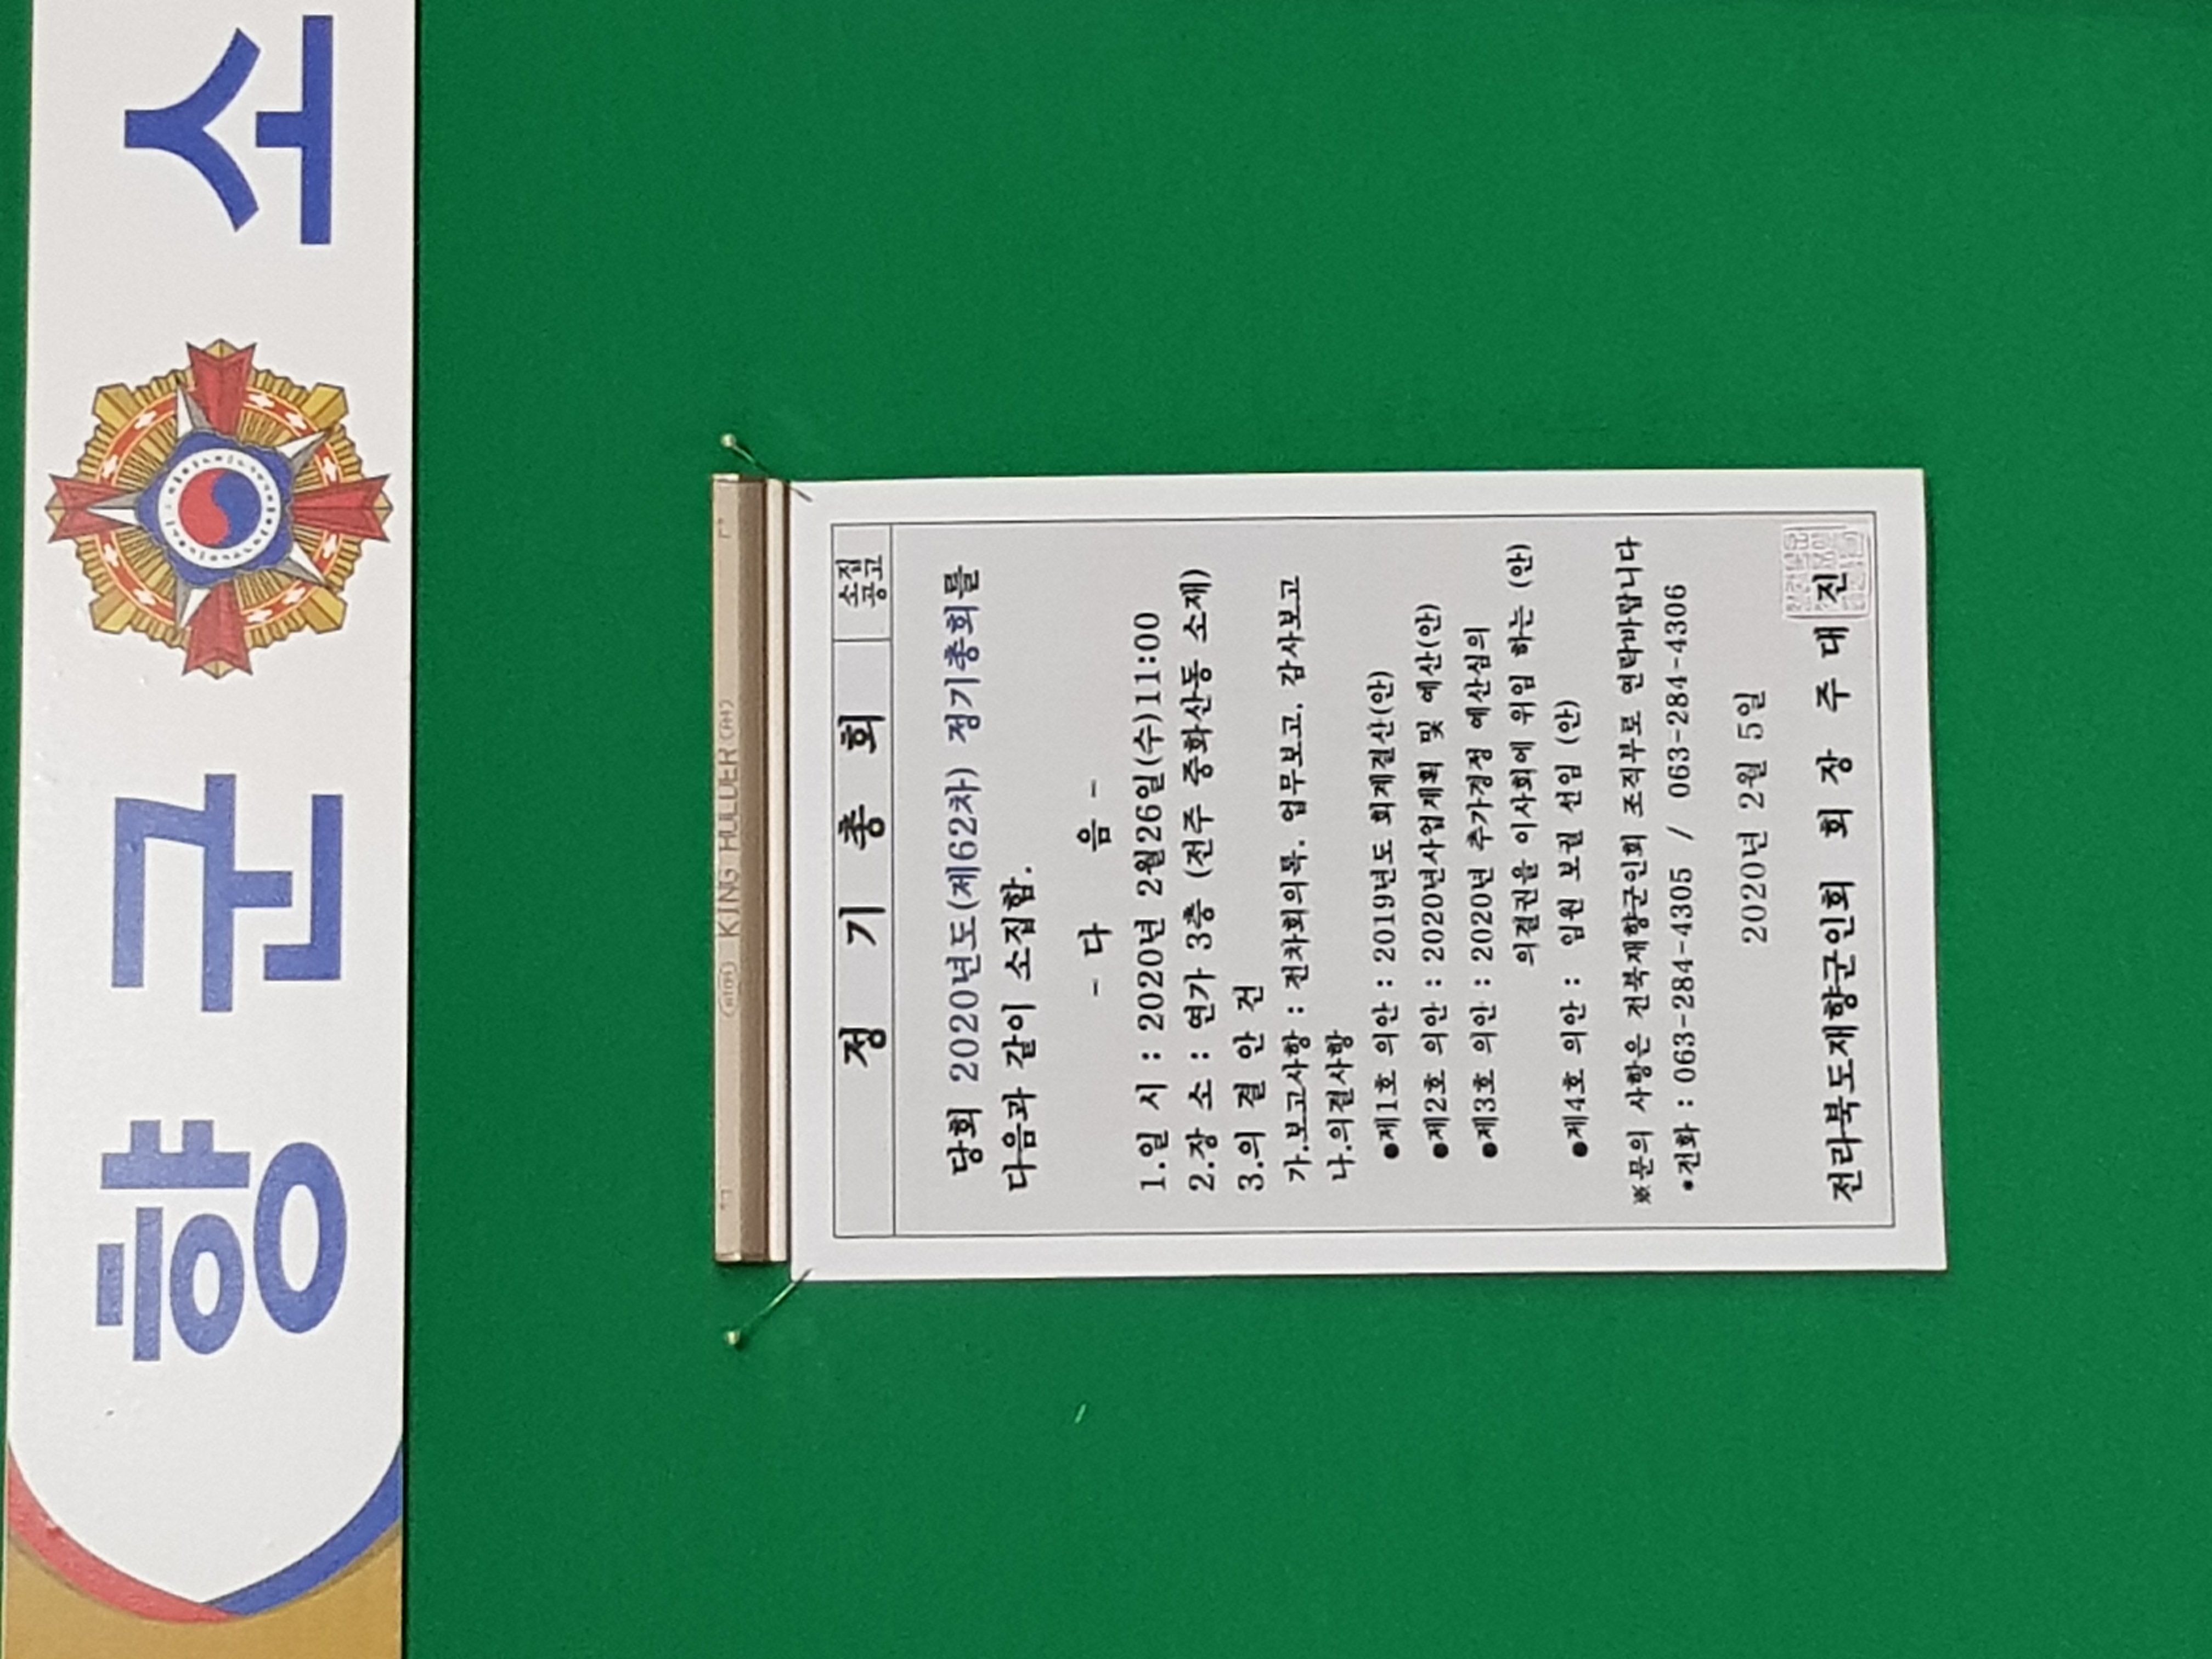 향군 소
KING HOLDER
정 기 총 회
소집
공고
당회 2020년도(제62차) 정기총회를
다음과 같이 소집함.
- 다 음 -
1.일 시 : 2020년 2월26일(수)11:00
2.장 소 : 연가 3층 (전주 중화산동 소재)
3.의 결 안 건
가.보고사항 : 전차회의록. 업무보고. 감사보고
나.의결사항
●제1호 의안 : 2019년도 회계결산(안)
●제2호 의안 : 2020년사업계획 및 예산(안)
●제3호 의안 : 2020년 추가경정 예산심의
의결권을 이사회에 위임 하는 (안)
●제4호 의안 : 임원 보궐 선임 (안)
※문의 사항은 전북재향군인회 조직부로 연락바랍니다
•전화 : 063-284-4305 / 063-284-4306
2020년 2월 5일
전라북도재향군인회 회 장 주 대 진